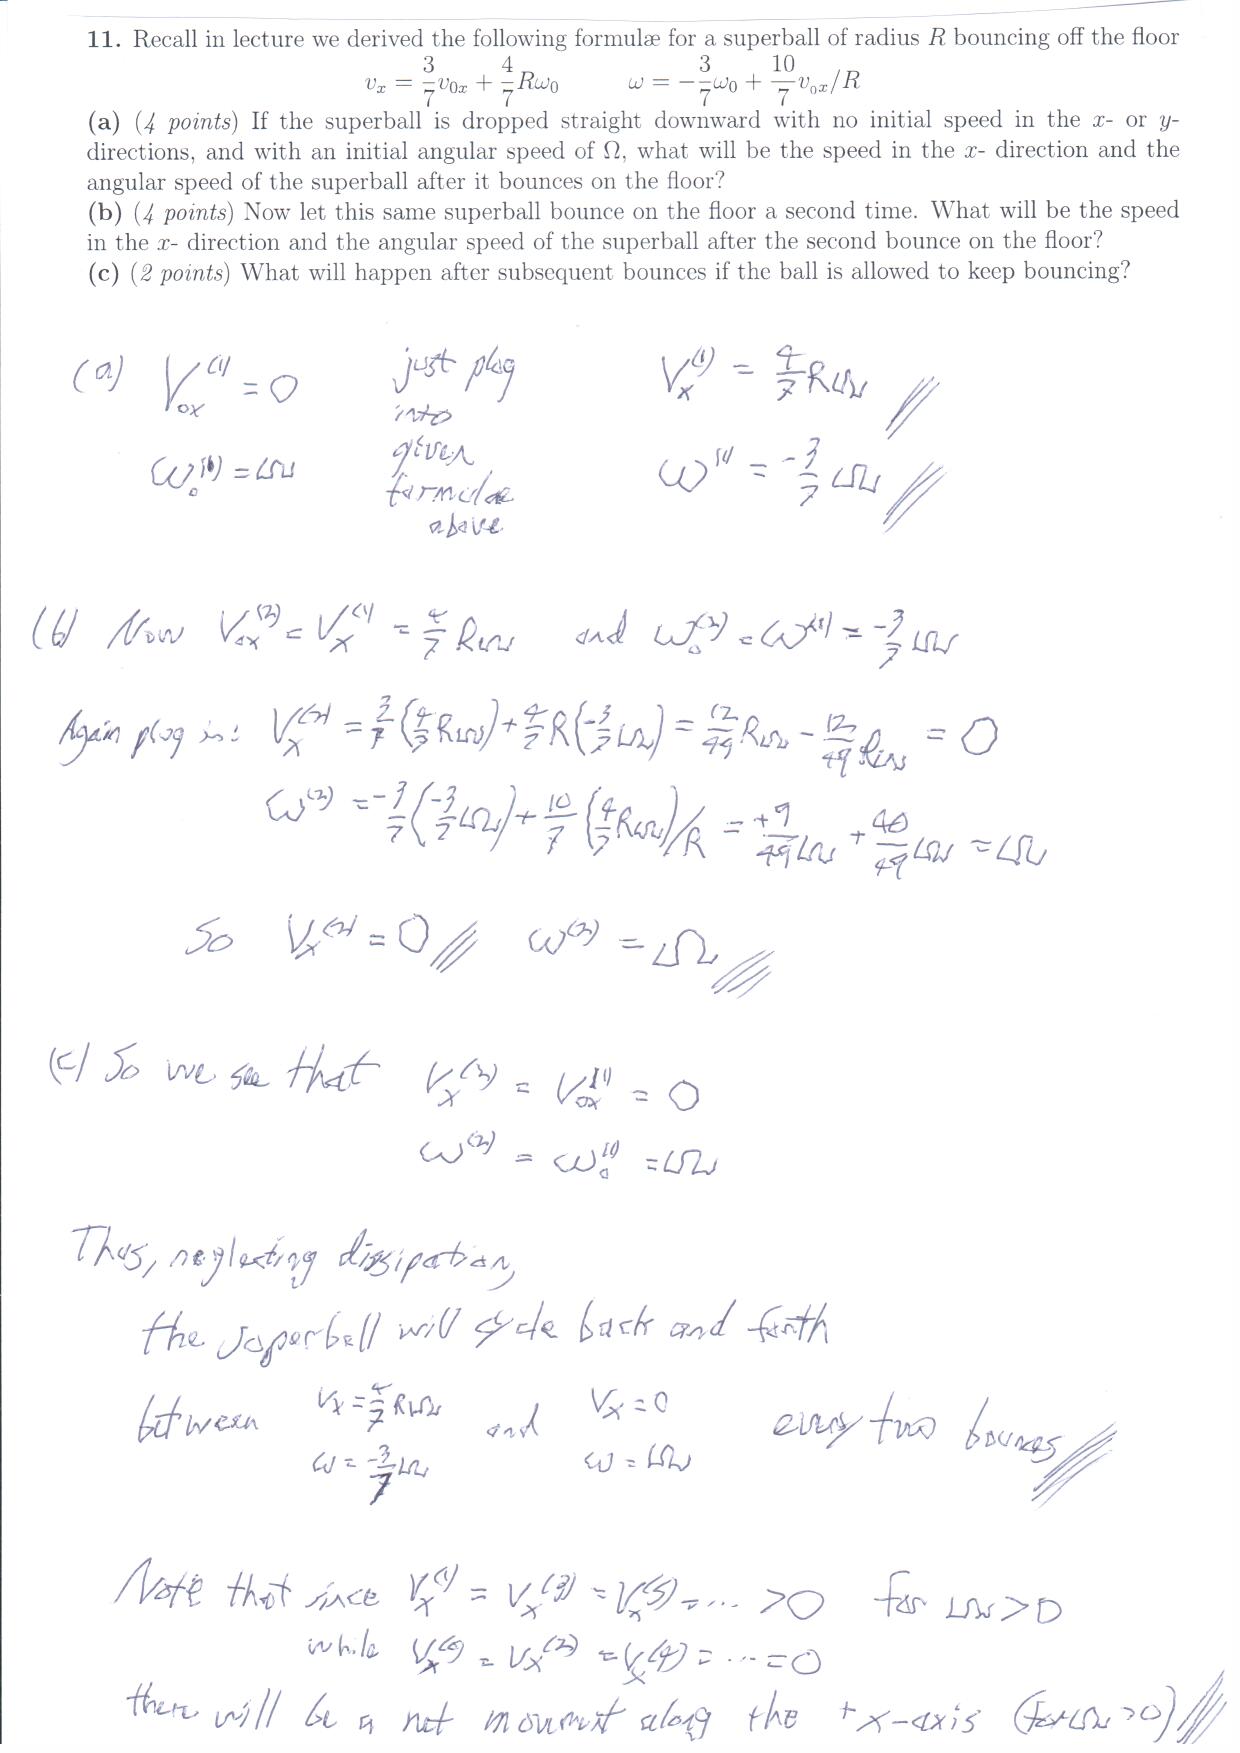 11. Recall in lecture we derived the following formulæ for a superball of radius R bouncing off the floor
v_x = 3/7 v_{0x} + 4/7 Rω_0    ω = −3/7 ω_0 + 10/7 v_{ox}/R
(a) (4 points) If the superball is dropped straight downward with no initial speed in the x- or y-
directions, and with an initial angular speed of Ω, what will be the speed in the x- direction and the
angular speed of the superball after it bounces on the floor?
(b) (4 points) Now let this same superball bounce on the floor a second time. What will be the speed
in the x- direction and the angular speed of the superball after the second bounce on the floor?
(c) (2 points) What will happen after subsequent bounces if the ball is allowed to keep bouncing?
(a) V_{ox}^{(1)} = 0    just plug    V_x^{(1)} = 4/7 RΩ
into
ω_o^{(1)} = Ω    given    ω^{(1)} = -3/7 Ω
formulae
above
(b) Now V_{ox}^{(2)} = V_x^{(1)} = 4/7 RΩ and ω_o^{(2)} = ω^{(1)} = -3/7 Ω
Again plug in: V_x^{(2)} = 3/7 (4/7 RΩ) + 4/7 R(-3/7 Ω) = 12/49 RΩ - 12/49 RΩ = 0
ω^{(2)} = -3/7 (-3/7 Ω) + 10/7 (4/7 RΩ)/R = +9/49 Ω + 40/49 Ω = Ω
So V_x^{(2)} = 0    ω^{(2)} = Ω
(c) So we see that V_x^{(2)} = V_{ox}^{(1)} = 0
ω^{(2)} = ω_o^{(1)} = Ω
Thus, neglecting dissipation,
the superball will cycle back and forth
between V_x = 4/7 RΩ and V_x = 0 every two bounces
ω = -3/7 Ω    ω = Ω
Note that since V_x^{(1)} = V_x^{(3)} = V_x^{(5)} = ... > 0 for Ω > 0
while V_x^{(0)} = V_x^{(2)} = V_x^{(4)} = ... = 0
there will be a net movement along the +x-axis (for Ω > 0)